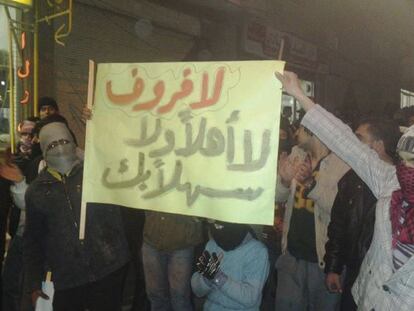 لافروف
لا أهلاً ولا
سهلاً بك